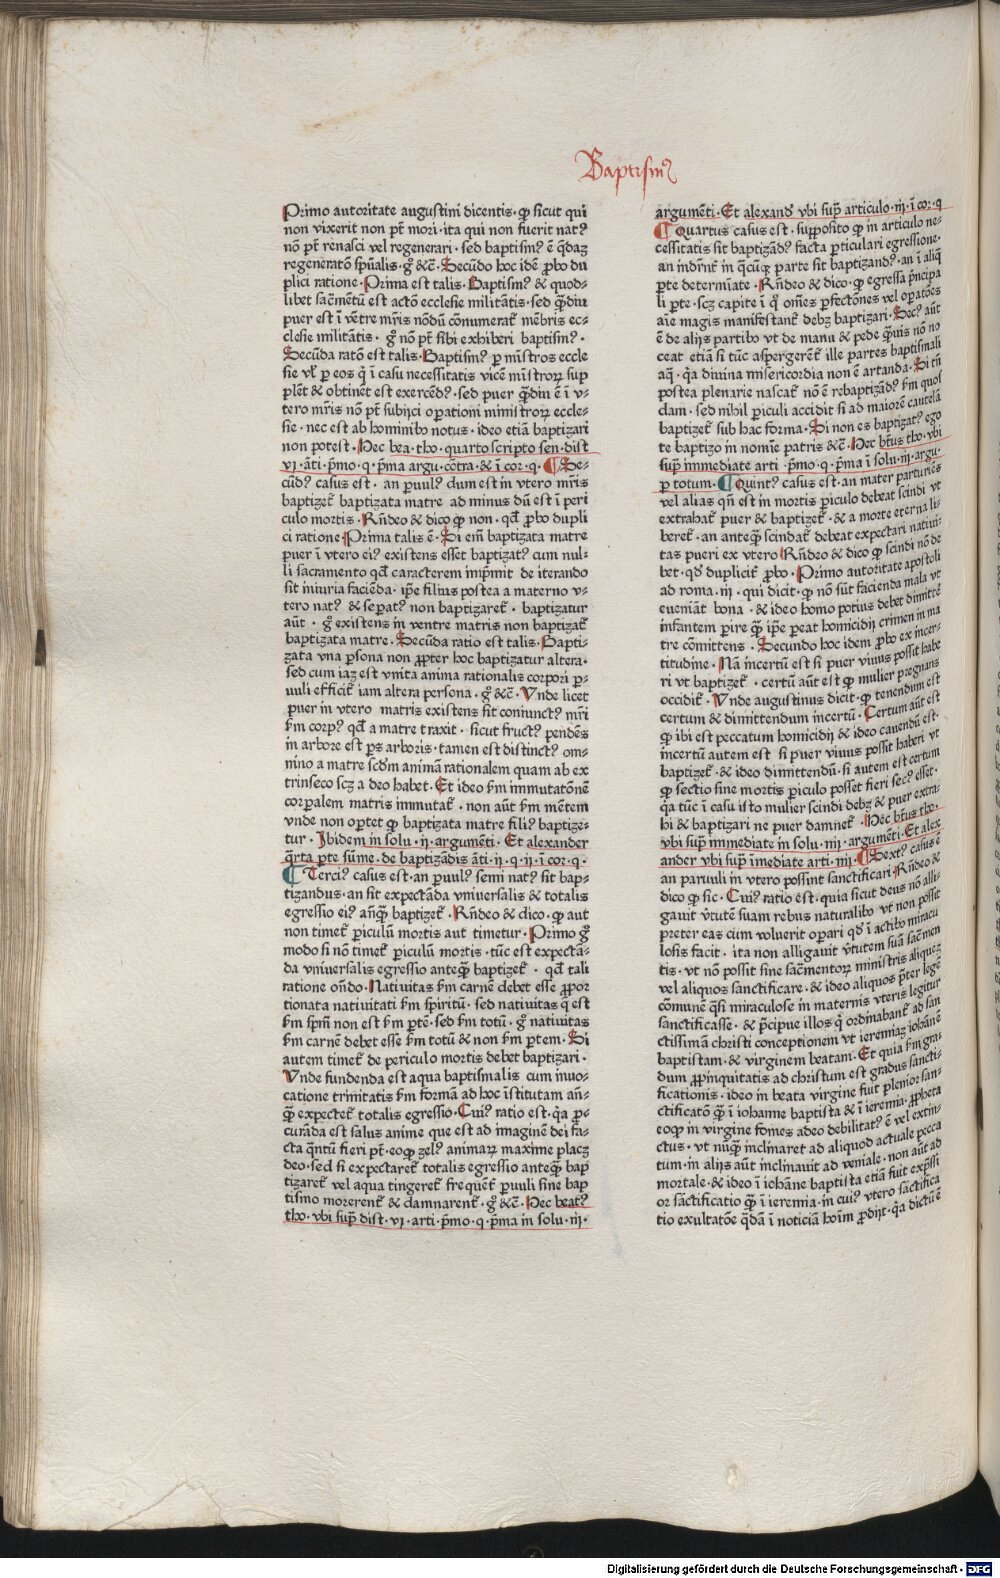 Baptismꝰ
Primo autoritate augustini dicentis· ꝙ sicut qui
non vixerit non pt̄ mori· ita qui non fuerit natꝰ
nō pt̄ renasci vel regenerari· sed baptismꝰ ē q̄daz
regeneratō spūalis· gͦ &c̄· Secūdo hoc idē ꝓbo du
plici ratione· Prima est talis· Baptismꝰ & quod-
libet sac̄mētū est actō ecclesie militātis· sed q̄ͣdiu
puer est ī vētre mr̄is nōdū cōnumerat᷑ mēbris ec-
clesie militātis· gͦ nō pt̄ sibi exhiberi baptismꝰ·
Secūda ratō est talis· Baptismꝰ ꝑ mīstros eccle
sie vl̓ ꝑ eos q̓ ī casu necessitatis vicē mīstroꝝ sup
plēt & obtinēt est exercēdꝰ· sed puer q̄ͣdiu ē ī v-
tero mr̄is nō pt̄ subijci operationi ministroꝝ eccle-
sie· nec est ab hominibꝰ notus· ideo etiā baptizari
non potest· Hec bea· tho· quarto scripto sen· dist
vj· āti· p̄mo· q· p̄ma argu· cōtra· & ī cor· q· ¶ Se-
cūdꝰ casus est· an ꝑuulꝰ dum est in vtero mr̄is
baptizet᷑ baptizata matre ad minus dū est ī peri
culo mortis· Rn̄deo & dico ꝙ non· qd̓ ꝓbo dupli
ci ratione Prima talis ē· Si em̄ baptizata matre
puer ī vtero eiꝰ existens esset baptizatꝰ cum nul-
li sacramento qd̓ caracterem imp̄mit de iterando
sit iniuria faciēda· ip̄e filius postea a materno v-
tero natꝰ & sepatꝰ non baptizaret᷑· baptizatur
aūt· gͦ existens in ventre matris non baptizat᷑
baptizata matre· Secūda ratio est talis· Bapti-
zata vna ꝑsona non ꝓpter hoc baptizatur altera·
sed cum iaꝫ est vnita anima rationalis corpori ꝑ-
uuli efficit᷑ iam altera persona· gͦ &c̄· Vnde licet
puer in vtero matris existens sit coniunctꝰ mr̄i
ẜm corpꝰ qd̓ a matre traxit· sicut fructꝰ pendēs
in arbore est ꝑs arboris· tamen est distinctꝰ om-
nino a matre scd̓m animā rationalem quam ab ex
trinseco scꝫ a deo habet· Et ideo ẜm immutatōnē
corpalem matris immutat᷑· non aūt ẜm mētem
vnde non oꝑtet ꝙ baptizata matre filiꝰ baptize-
tur· Ibidem in solu· ij· argumēti· Et alexander
q̄rta ꝑte sūme· de baptizādis āti· ij· q· ij· ī cor· q·
¶ Terciꝰ casus est· an ꝑuulꝰ semi natꝰ sit bap-
tizandus· an sit expectāda vniuersalis & totalis
egressio eiꝰ āñq̄ͣ baptizet᷑· Rn̄deo & dico· ꝙ aut
non timet᷑ periculū mortis aut timetur· Primo gͦ
modo si nō timet᷑ periculū mortis· tūc est expectā-
da vniuersalis egressio anteq̄ͣ baptizet᷑· qd̓ tali
ratione on̄do· Natiuitas ẜm carnē debet esse ꝓpor
tionata natiuitati ẜm spiritū· sed natiuitas q̄ est
ẜm spm̄ non est ẜm ꝑtē· sed ẜm totū· gͦ natiuitas
ẜm carnē debet esse ẜm totū & non ẜm ꝑtem· Si
autem timet᷑ de periculo mortis debet baptizari·
Vnde fundenda est aqua baptismalis cum inuo-
catione trinitatis ẜm formā ad hoc īstitutam an-
q̄ͣ expectet᷑ totalis egressio· Cuiꝰ ratio est· q̄a ꝓ-
curāda est salus anime que est ad imaginē dei fa-
cta q̄ntū fieri pt̄· eoꝙ zelꝰ animaꝝ maxime placꝫ
deo· sed si expectaret᷑ totalis egressio anteq̄ͣ bap
tizaret᷑ vel aqua tingeret᷑ freq̄ēt᷑ ꝑuuli sine bap
tismo morerent᷑ & damnarent᷑· gͦ &c̄· Hec beatꝰ
tho· vbi sup̄ dist· vj· arti· p̄mo· q· p̄ma in solu· iij·
argumēti· Et alexand̓ vbi sup̄ articulo· iij· ī cor· q
¶ Quartus casus est· supposito ꝙ in articulo ne-
cessitatis sit baptizādꝰ facta ꝑticulari egressione·
an indr̄nt̄ in q̄cūqꝫ parte sit baptizandꝰ· an ī aliq̄
ꝑte determinate· Rn̄deo & dico· ꝙ egressa p̄ncipa
li ꝑte· scꝫ capite ī qͦ om̄es ꝑfectōnes vel oꝑatōes
aīe magis manifestant᷑ debꝫ baptizari· Secꝰ aūt
ē de alijs partibꝰ vt de manu & pede q̄ͣuis nō no
ceat etiā si tūc aspergeret᷑ ille partes baptismali
aq̄· q̄a diuina misericordia non ē artanda· Si tn̄
postea plenarie nascat᷑ nō ē rebaptizādꝰ ẜm quos
dam· sed nihil periculi accidit si ad maiorē cautelā
baptizet᷑ sub hac forma· Si non es baptizatꝰ ego
te baptizo in nomīe patris &c̄· Hec bt̄us tho· vbi
sup̄ immediate arti· p̄mo· q· p̄ma ī solu· iij· argu·
ꝑ totum· ¶ Quintꝰ casus est· an mater parturiēs
vel alias qn̄ est in mortis periculo debeat scindi vt
extrahat᷑ puer & baptizet᷑· & a morte eterna li-
beret᷑· an anteq̄ͣ scindat᷑ debeat expectari natiui-
tas pueri ex vtero Rn̄deo & dico ꝙ scindi nō de
bet· qd̓ duplicit᷑ ꝓbo· Primo autoritate apostoli
ad roma· iij· qui dicit· ꝙ nō sūt facienda mala vt
eueniāt bona· & ideo homo potius debet dimittē
infantem ꝑire q̄ͣ ip̄e ꝑeat homicidij crimen in ma
tre cōmittens· Secundo hoc idem ꝓbo ex incer-
titudine· Nā incertū est si puer viuus possit habe
ri vt baptizet᷑· certū aūt est ꝙ mulier pregnans
occidit᷑· Vnde augustinus dicit· ꝙ tenendum est
certum & dimittendum incertū· Certum aūt est
ꝙ ibi est peccatum homicidij & ideo cauendū est·
incertū autem est si puer viuus possit haberi vt
baptizet᷑· & ideo dimittendū· si autem est certum
ꝙ sectio sine mortis ꝑiculo posset fieri secꝰ esset·
q̄a tūc ī casu isto mulier scindi debꝫ & puer extra-
hi & baptizari ne puer damnet᷑· Hec bt̄us tho·
vbi sup̄ immediate in solu· iiij· argumēti· Et alex
ander vbi sup̄ īmediate arti· iiij· ¶ Sextꝰ casus ē
an paruuli in vtero possint sanctificari· Rn̄deo &
dico ꝙ sic· Cuiꝰ ratio est· quia sicut deus nō alli-
gauit v̓tutē suam rebus naturalibꝰ vt non possit
preter eas cum voluerit oꝑari qd̓ ī actibꝰ miracu
losis facit· ita non alligauit v̓tutem suā sac̄men
tis· vt nō possit sine sac̄mentoꝝ ministris aliquez
vel aliquos sanctificare· & ideo aliquos p̄ter legē
cōmunē q̄si miraculose in maternis vteris legitur
sanctificasse· & p̄cipue illos q̓ ordinabant᷑ ad san
ctissimā christi conceptionem vt ieremiaz iohānē
baptistam· & virginem beatam· Et quia ẜm gra-
dum ꝓpinquitatis ad christum est gradus sancti-
ficationis· ideo in beata virgine fuit plenior san-
ctificatō q̄ͣ ī iohanne baptista & ī ieremia· ꝓpheta
eoꝙ in virgine fomes adeo debilitatꝰ ē vel extin-
ctus· vt nūq̄ͣ inclinaret ad aliquod actuale pecca
tum· in alijs aūt inclinauit ad veniale· non aūt ad
mortale· & ideo ī iohāne baptista etiā fuit exp̄ssi
or sāctificatio q̄ͣ ī ieremia· in cuiꝰ vtero sāctifica
tio exultatōe q̄dā ī noticiā hoīm ꝓdijt· q̄a dictū ē
Digitalisierung gefördert durch die Deutsche Forschungsgemeinschaft · DFG